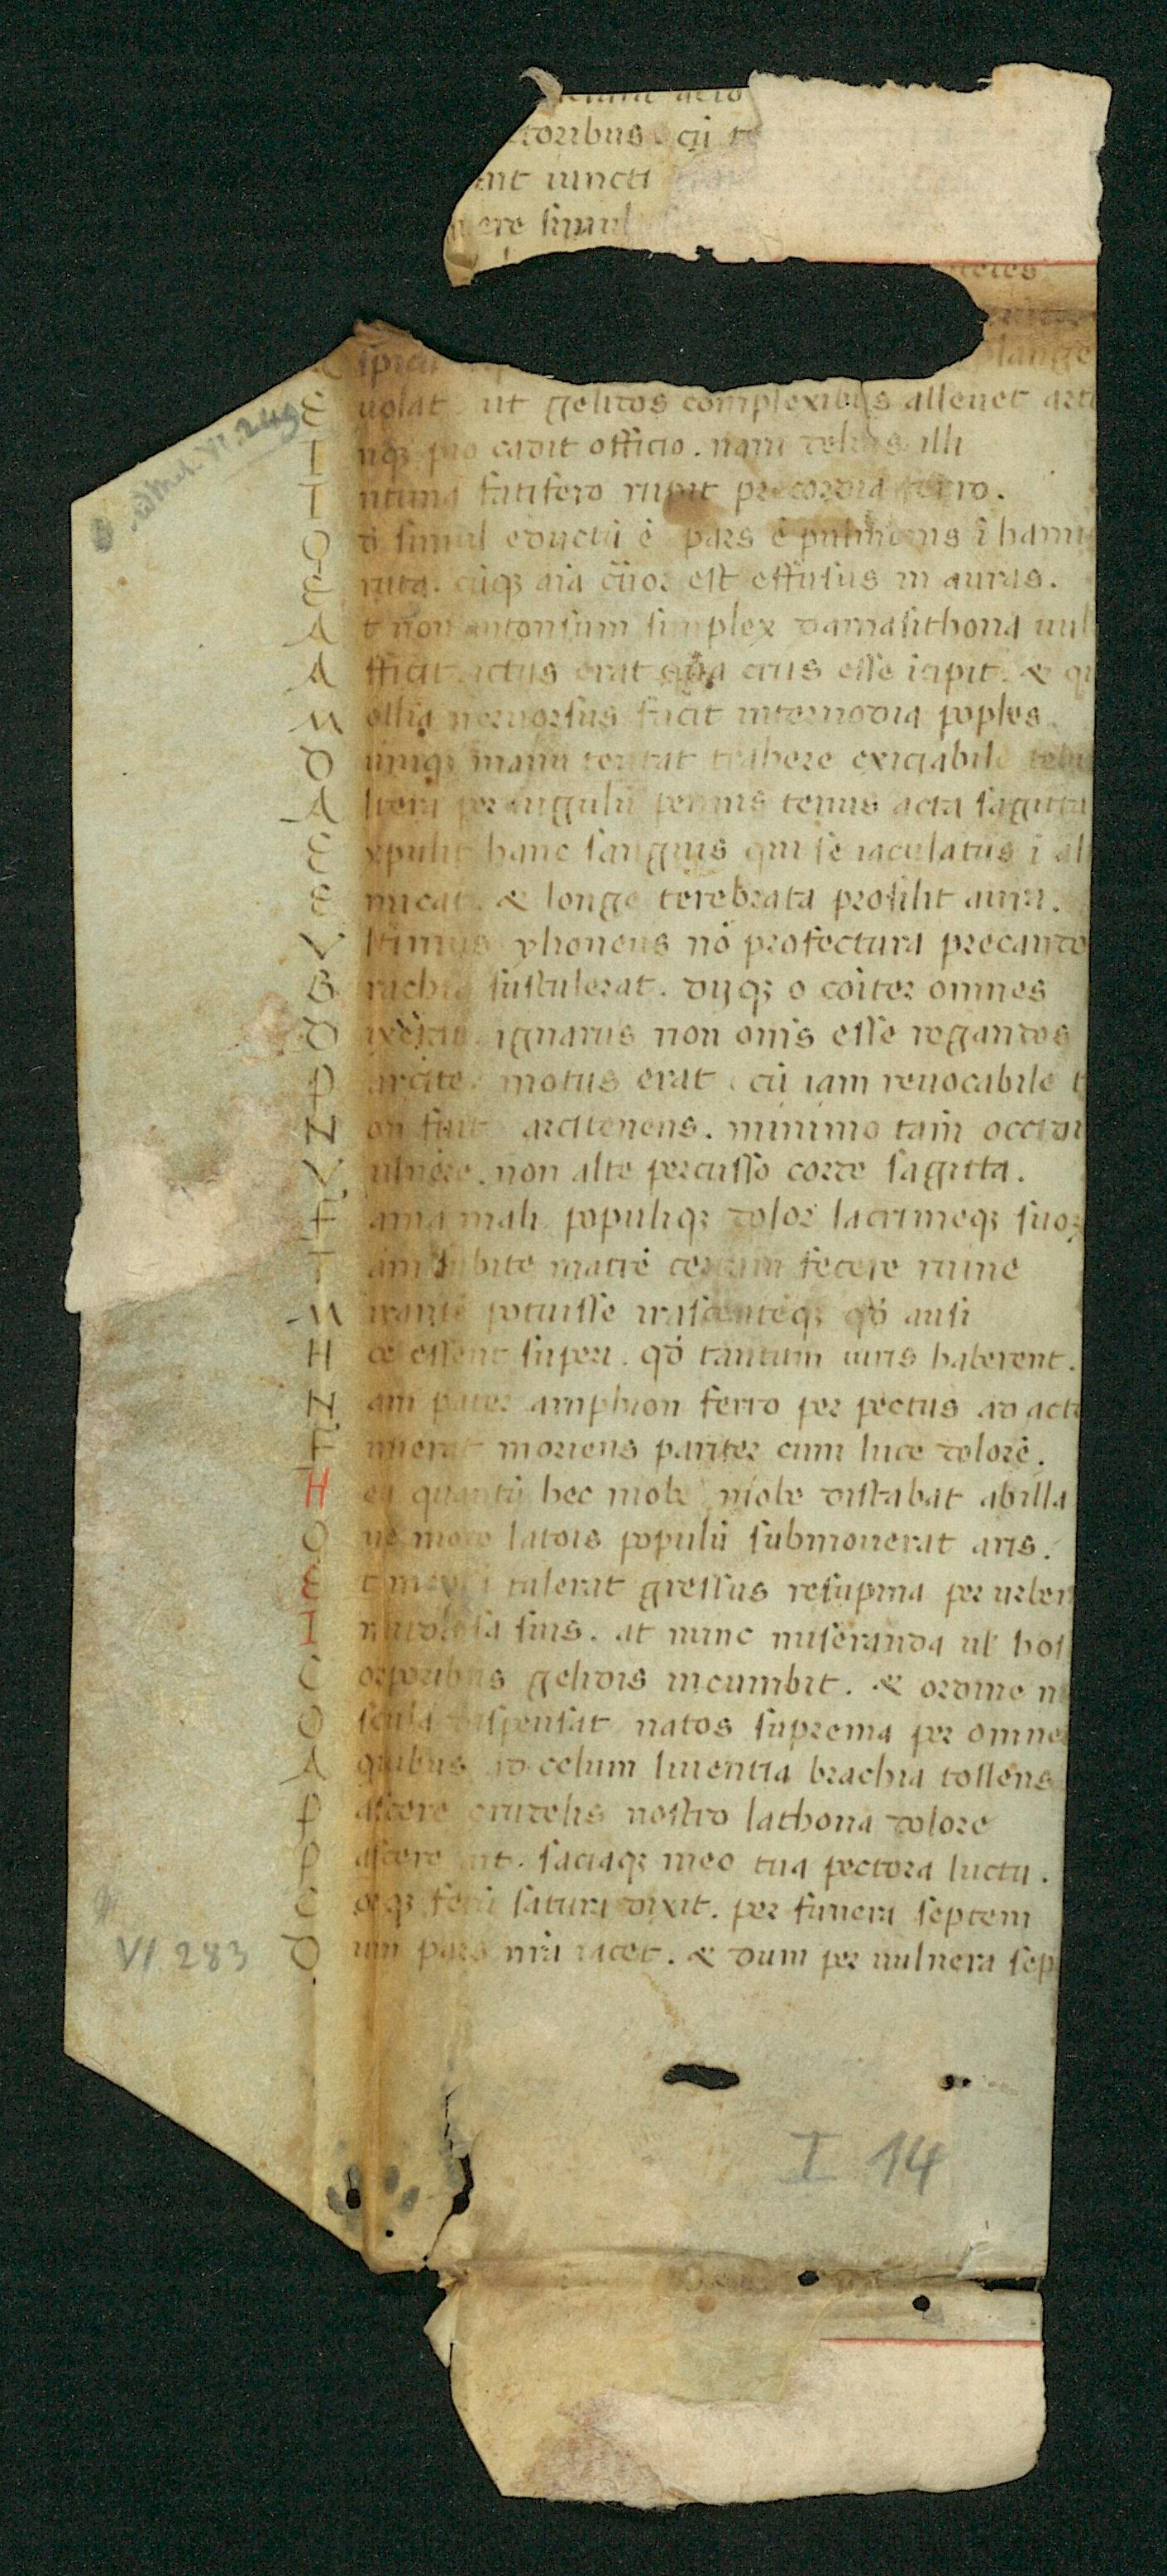 toribus. cū t
ant iuncti
ere simul
teres
plange
E uolat. ut gelidos complexibus alleuet artu
I nqȝ pio cadit officio. nam delius illi
I ntima fatifero rupit precordia ferro.
Q đ simul eductū ē pars ē pulmonis ī hami
E ruta. cūqȝ aīa cruor est effusus in auras.
A t non intonsum simplex damasithona uul
A fficit. ictus erat qua crus esse īcipit. & qu
M ollia neruosus facit internodia poples.
D umqȝ manu temtat trahere exiciabile telu
A ltera per iugulū pennis tenus acta sagitta
E xpulit hanc sanguis qui se iaculatus ī al
E micat. & longe terebrata prosilit aura.
V ltimus ylioneus nō profectura precando
B rachia sustulerat. dijqȝ o cōiter omnes
D ixerat. ignarus non oms esse rogandos
P arcite. motus erat. cū iam reuocabile t
N on fuit arcitenens. minimo tam̄ occidi
V ulnere. non alte percusso corde sagitta.
F ama mali populiqȝ dolor lacrimeqȝ suoȝ
T am subite matrē certam fecere ruine
M irantē potuisse irascentēqȝ qđ ausi
H oc essent superi. qđ tantum iuris haberent.
N am pater amphion ferro per pectus adacto
F inierat moriens pariter cum luce dolorē.
H eu quantū hec niobe niobe distabat abilla
Q ue modo latois populū submouerat aris.
E t mediā tulerat gressus resupina per urbem
I nuidiosa suis. at nunc miseranda ul hos
C orporibus gelidis incumbit. & ordine n
O scula dispensat natos suprema per omnes
A quibus ad celum liuentia brachia tollens
P ascere crudelis nostro lathona dolore
P ascere ait. saciaqȝ meo tua pectora luctu.
C orqȝ ferū satura dixit. per funera septem
D um pars mīa iacet. & dum per uulnera sep
Met. VI. 249
VI 283
I 14